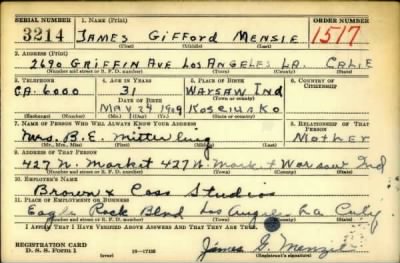 SERIAL NUMBER 1. NAME (Print) ORDER NUMBER
3214 JAMES Gifford MENSIE 1517
(First) (Middle) (Last)
2. ADDRESS (Print)
2690 GRIFFIN AVE LOS ANGELES LA. CALIF
(Number and street or R. F. D. number) (Town) (County) (State)
3. TELEPHONE 4. AGE IN YEARS 5. PLACE OF BIRTH 6. COUNTRY OF CITIZENSHIP
CA. 6000 31 WARSAW IND
DATE OF BIRTH (Town or county)
MAY 29 1909 KOSCIUSKO
(Exchange) (Number) (Mo.) (Day) (Yr.) (State or country)
7. NAME OF PERSON WHO WILL ALWAYS KNOW YOUR ADDRESS 8. RELATIONSHIP OF THAT PERSON
Mrs. B.E. Mitterling MOTHER
(Mr., Mrs., Miss) (First) (Middle) (Last)
9. ADDRESS OF THAT PERSON
427 N. Market 427 N. Market Warsaw Ind
(Number and street or R. F. D. number) (Town) (County) (State)
10. EMPLOYER'S NAME
Brown & Cass Studios
11. PLACE OF EMPLOYMENT OR BUSINESS
Eagle Rock Blvd Los Angeles La Calif
(Number and street or R. F. D. number) (Town) (County) (State)
I AFFIRM THAT I HAVE VERIFIED ABOVE ANSWERS AND THAT THEY ARE TRUE.
REGISTRATION CARD
D. S. S. Form 1 (over) 16—17105 James G. Menzie
(Registrant's signature)